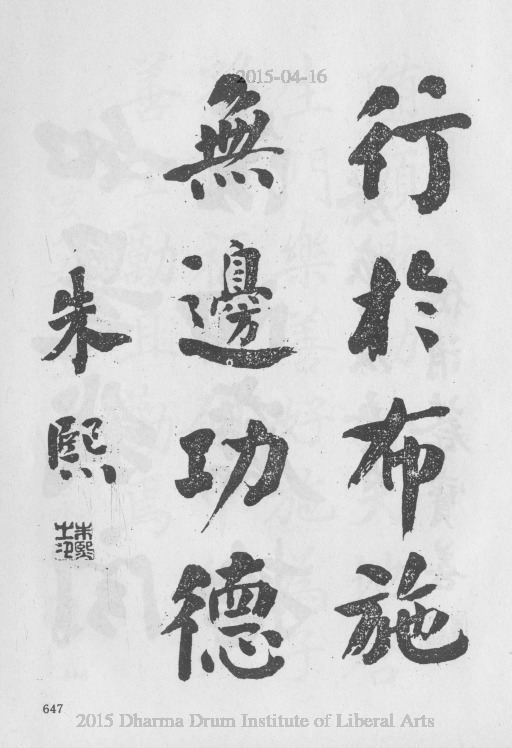 2015-04-16
行於布施
無邊功德
朱熙
朱熙
士印
647
2015 Dharma Drum Institute of Liberal Arts